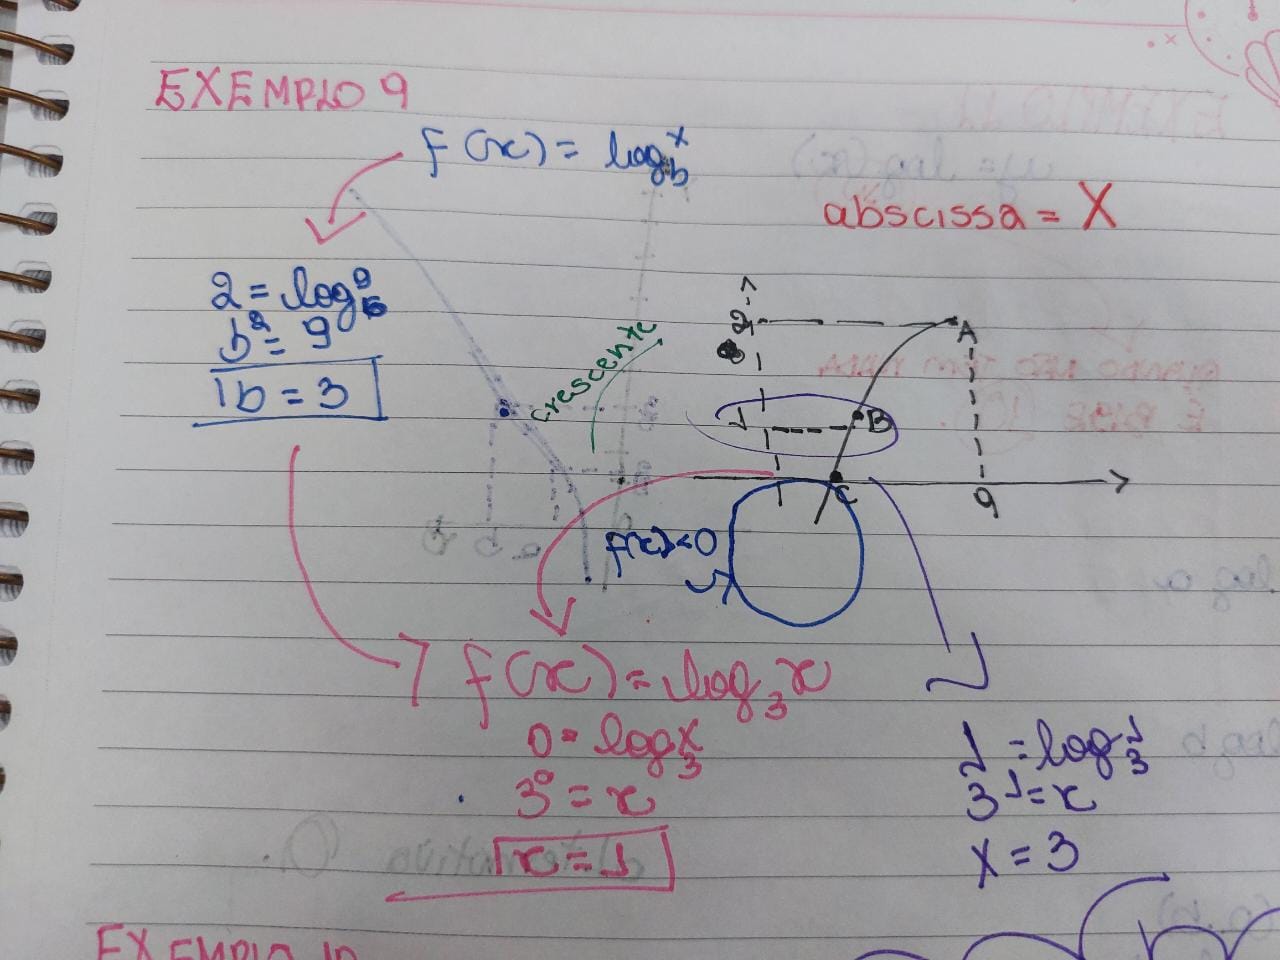 EXEMPLO 9
f(x) = log_b^x
abscissa = X
2 = log_b^9
b² = 9
b = 3
crescente
2
A
1
B
C
9
f(x) < 0
f(x) = log₃x
0 = log_3^x
3⁰ = x
x = 1
1 = log_3^1
3¹ = x
x = 3
EXEMPLO 10